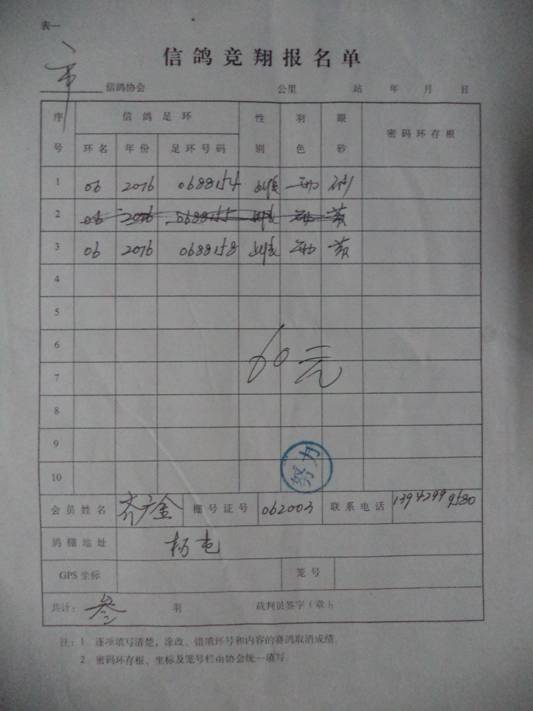 表一
信鸽竞翔报名单
市 信鸽协会 公里 站 年 月 日
序号 信鸽足环 性别 羽色 眼砂 密码环存根
环名 年份 足环号码
1 06 2016 0688154 雌
2 06 2016 0688155 雌 黄
3 06 2016 0688158 雌 黄
4
5
6
7
8
9
10
60元
努力
会员姓名 齐广金 棚号证号 062003 联系电话
鸽棚地址 杨屯
GPS坐标 笼号
共计: 叁 羽 裁判员签字(章):
注:1 逐项填写清楚,涂改、错项环号和内容的赛鸽取消成绩
2 密码环存根、坐标及笼号栏由协会统一填写